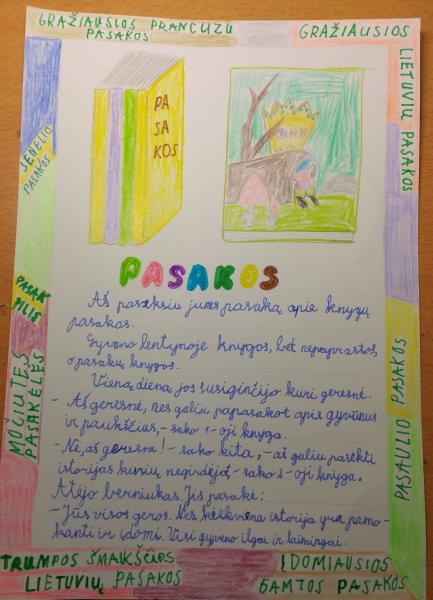 GRAŽIAUSIOS PRANCUZU
PASAKOS
GRAŽIAUSIOS
LIETUVIŲ PASAKOS
SENELIO
PASAKOS
PASAK
PILIS
MOČIUTĖS
PASAKĖLĖS
PASAULIO PASAKOS
PA
SA
KOS
PASAKOS
Aš paseksiu jums pasaką apie knygų
pasakas.
Gyveno lentynoje knygos, bet nepaprastos,
o pasakų knygos.
Vieną dieną jos susiginčijo kuri geresnė.
- Aš geresnė, nes galiu papasakot apie gyvūnus
ir paukščius, - sako 1-oji knyga.
- Ne, aš geresnė! - sako kita, - aš galiu pasekti
istorijas kurių negirdėja, - sako 2-oji knyga.
Atėjo berniukas. Jis pasakė:
- Jūs visos geros. Nes kiekviena istorija yra pamo-
kanti ir įdomi. Visi gyveno ilgai ir laimingai.
TRUMPOS ŠMAIKŠČIOS
LIETUVIŲ PASAKOS
ĮDOMIAUSIOS
GAMTOS PASAKOS